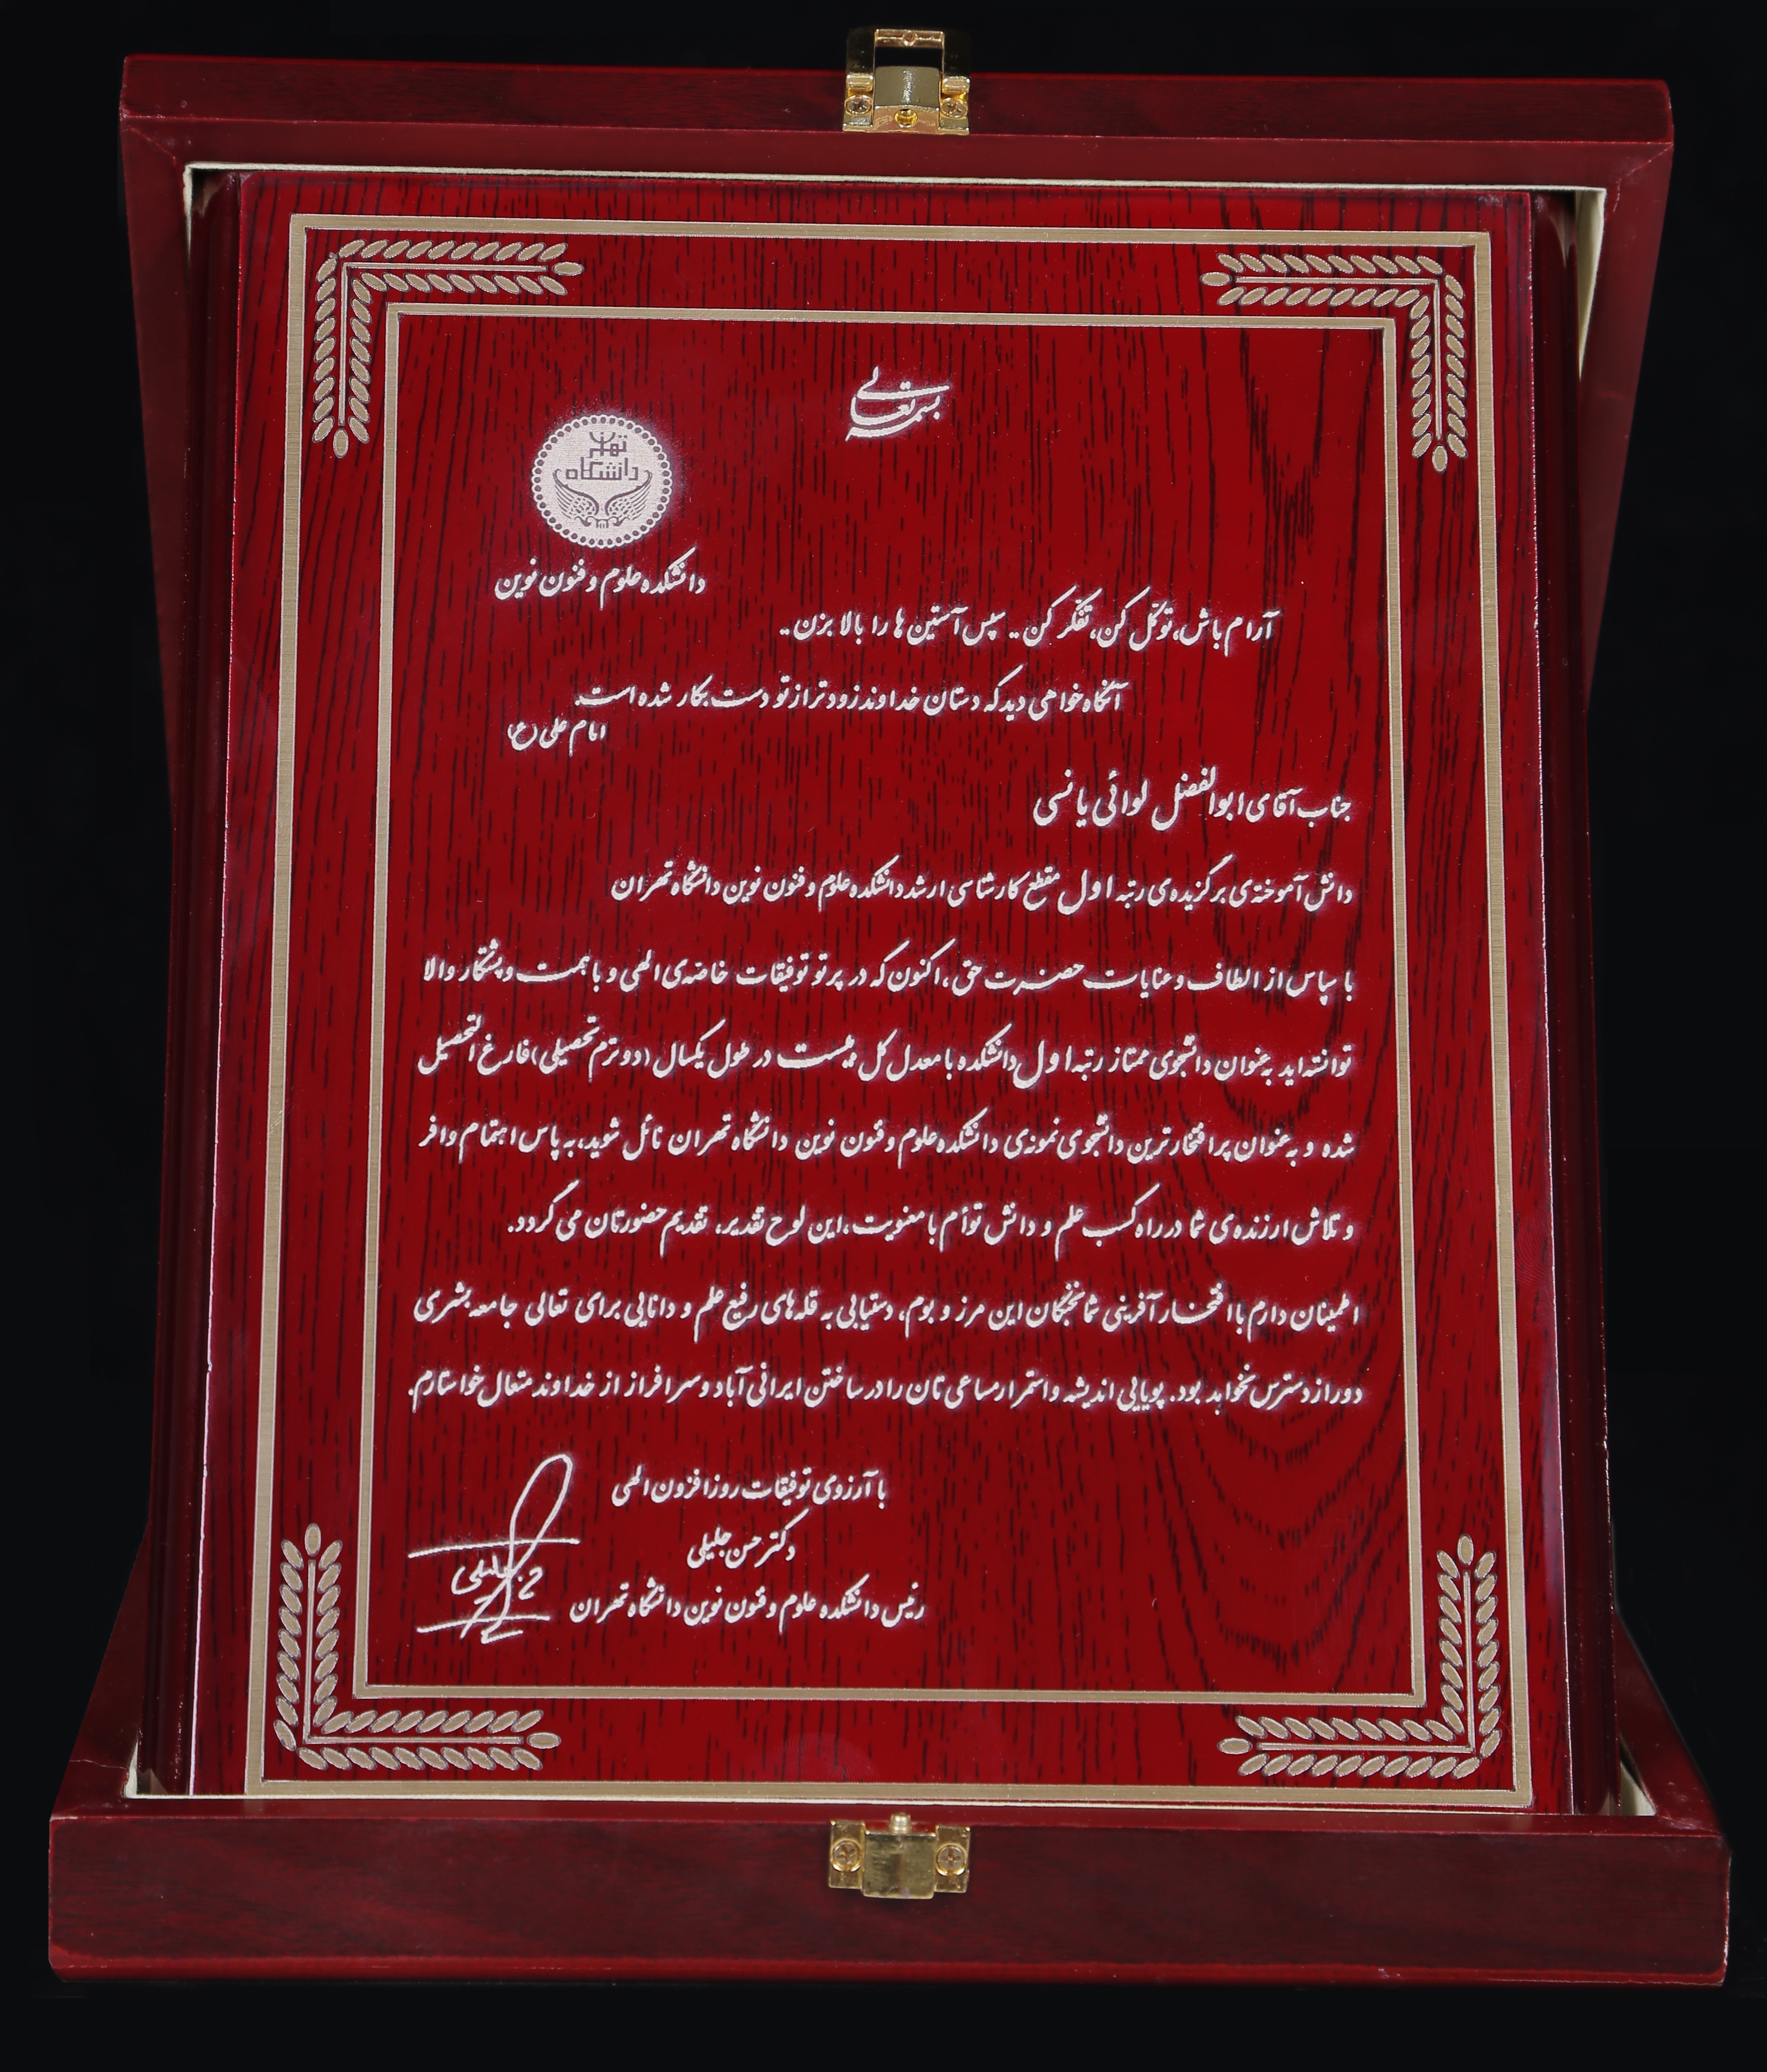 بسمه تعالی
دانشگاه تهران
دانشکده علوم و فنون نوین
آرام باش، توکّل کن، تفکّر کن .. سپس آستین ها را بالا بزن ..
آنگاه خواهی دید که دستان خداوند زودتر از تو دست بکار شده است.
امام علی (ع)
جناب آقای ابوالفضل لوائی یانسی
دانش آموخته‌ی برگزیده‌ی رتبه اول مقطع کارشناسی ارشد دانشکده علوم و فنون نوین دانشگاه تهران
با سپاس از الطاف و عنایات حضرت حق، اکنون که در پرتو توفیقات خاصّه‌ی الهی و با همت و پشتکار والا
توانسته اید به عنوان دانشجوی ممتاز رتبه اول دانشکده با معدل کل بیست در طول یکسال (دو ترم تحصیلی) فارغ التحصیل
شده و به عنوان پر افتخارترین دانشجوی نمونه‌ی دانشکده علوم و فنون نوین دانشگاه تهران نائل شوید، به پاس اهتمام وافر
و تلاش ارزنده‌ی شما در راه کسب علم و دانش توأم با معنویت، این لوح تقدیر، تقدیم حضورتان می گردد.
اطمینان دارم با افتخار آفرینی شما نخبگان این مرز و بوم، دستیابی به قله‌های رفیع علم و دانایی برای تعالی جامعه بشری
دور از دسترس نخواهد بود. پویایی اندیشه و استمرار مساعی تان را در ساختن ایرانی آباد و سرافراز از خداوند متعال خواستارم.
با آرزوی توفیقات روزافزون الهی
دکتر حسن جلیلی
رئیس دانشکده علوم و فنون نوین دانشگاه تهران